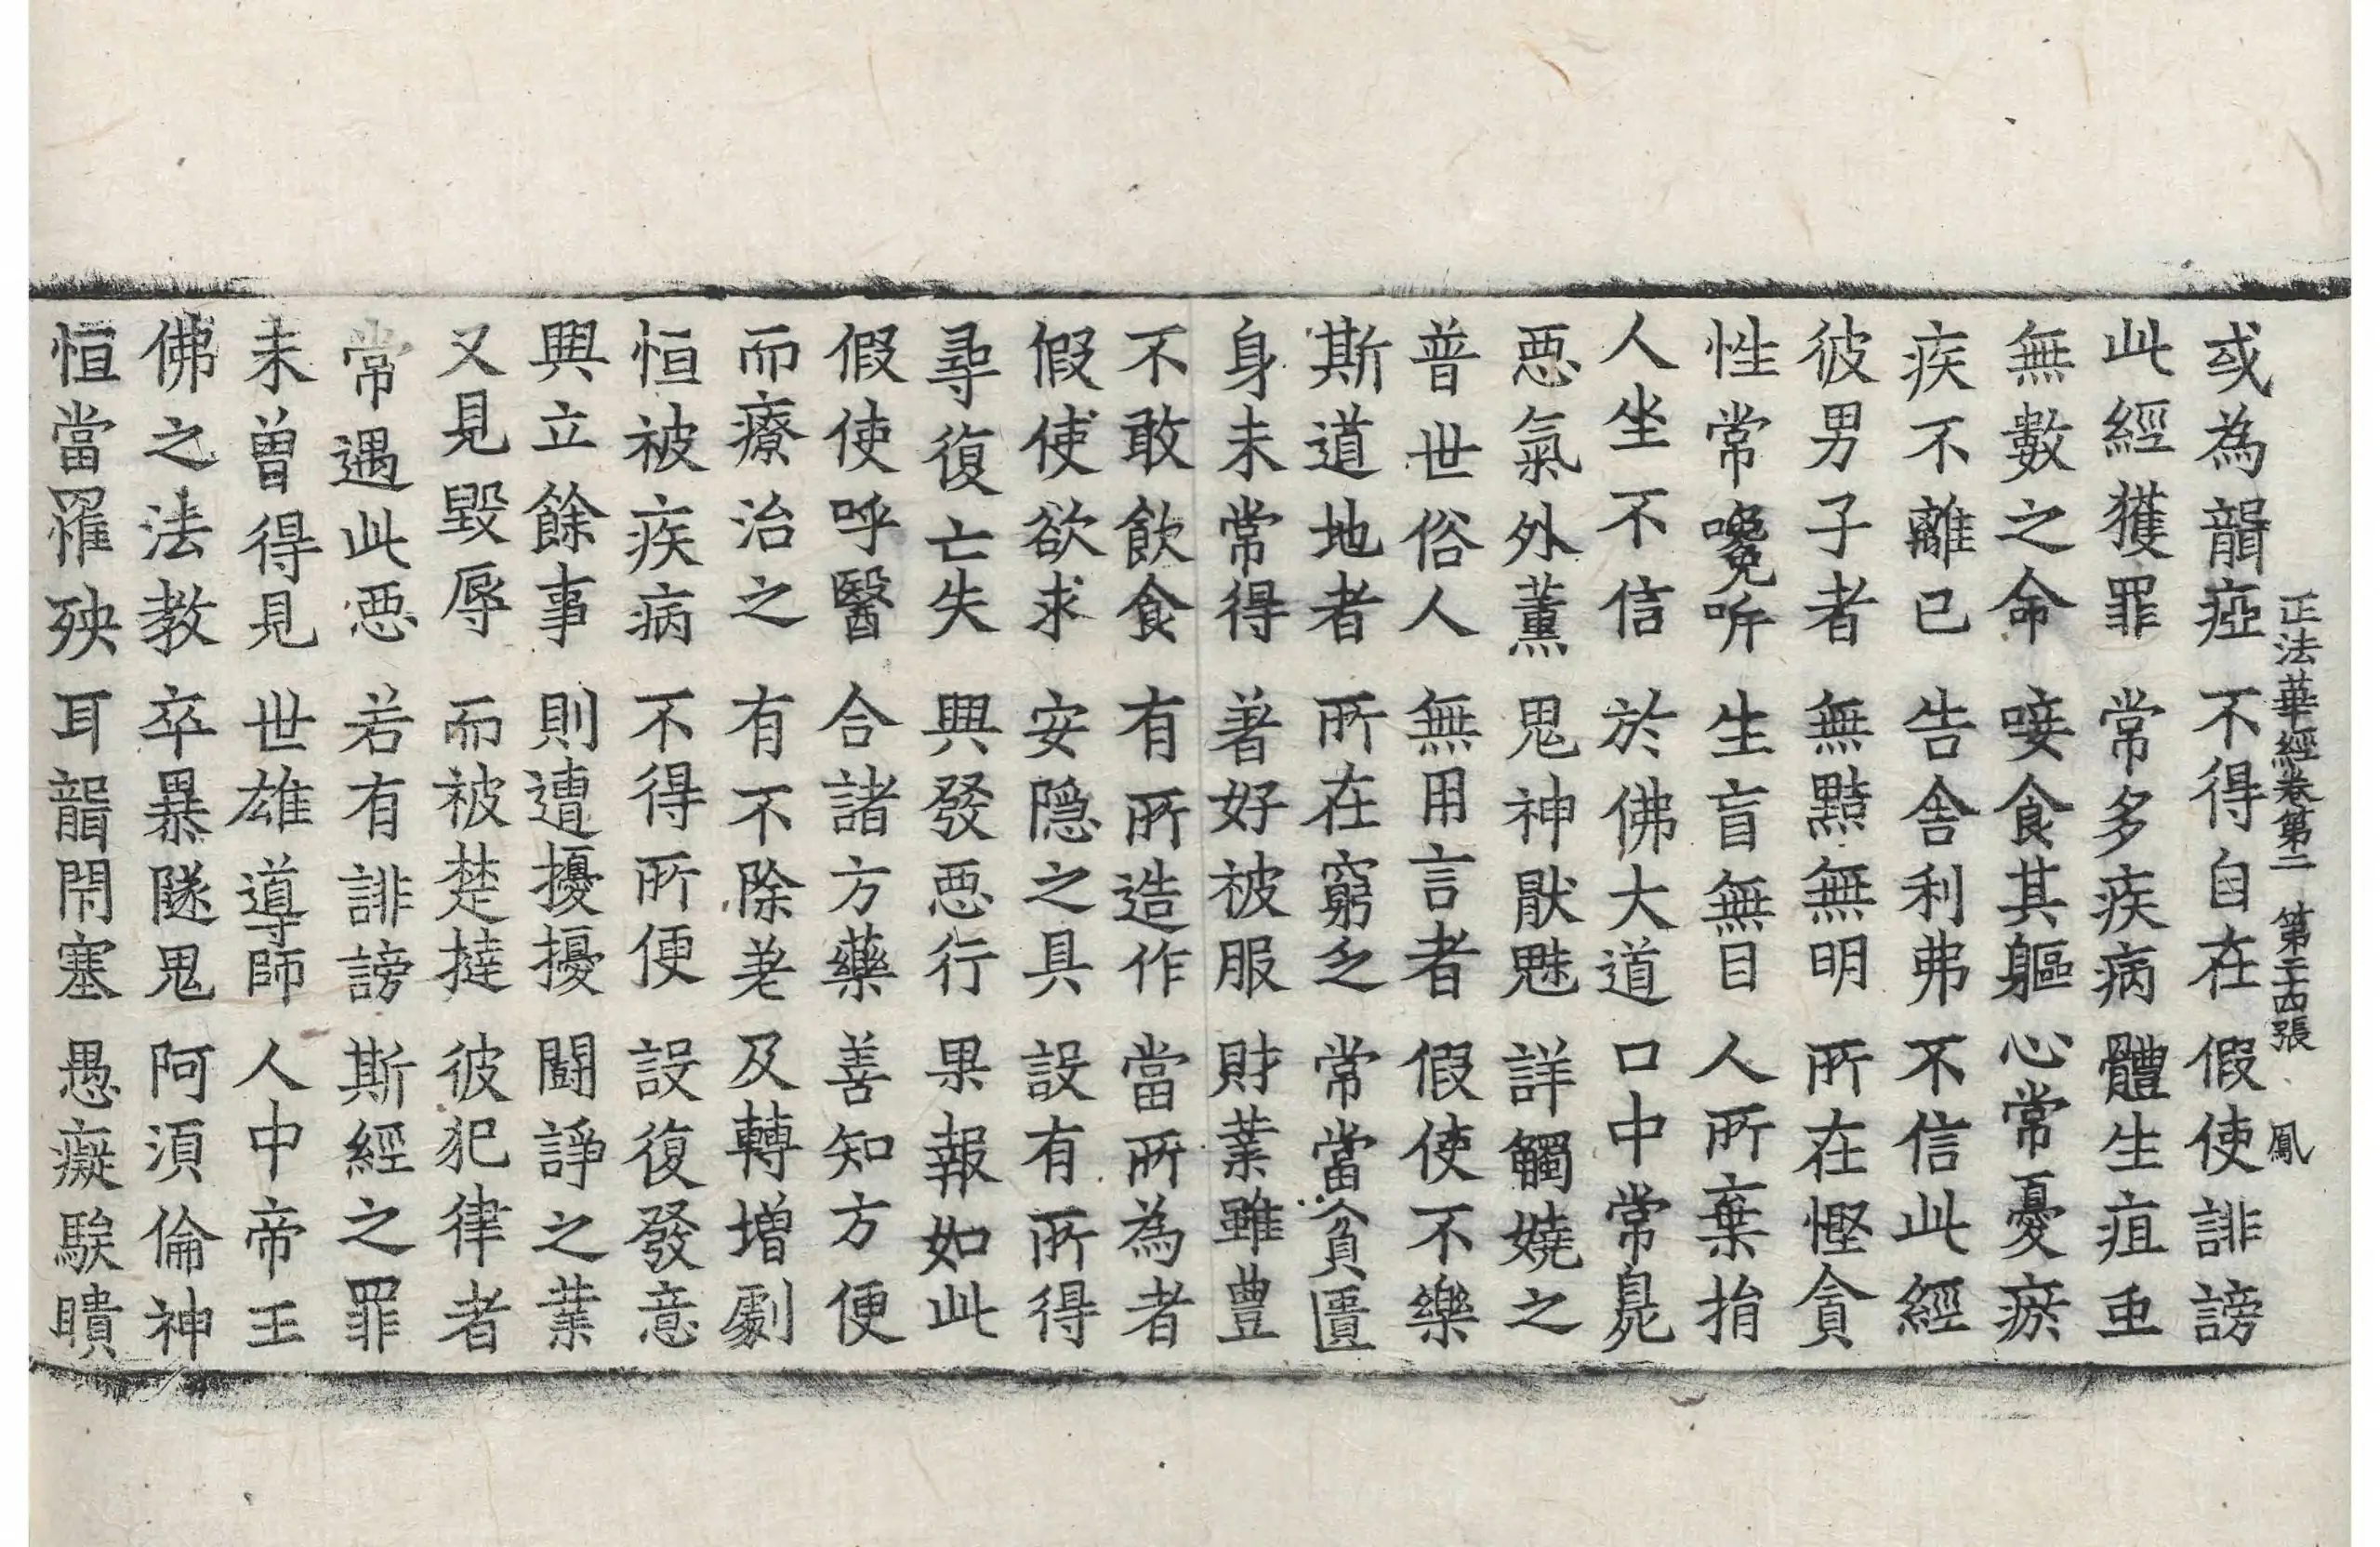 正法華經卷第二 第二十四張 鳳
或為聾瘂 不得自在 假使誹謗
此經獲罪 常多疾病 體生疽重
無數之命 唼食其軀 心常憂瘀
疾不離已 告舍利弗 不信此經
彼男子者 無黠無明 所在慳貪
性常嚵听 生盲無目 人所棄捐
人坐不信 於佛大道 口中常臰
惡氣外薰 鬼神猒魅 詳觸嬈之
普世俗人 無用言者 假使不樂
斯道地者 所在窮乏 常當貧匱
身未常得 著好被服 財業雖豊
不敢飲食 有所造作 當所為者
假使欲求 安隠之具 設有所得
尋復亡失 興發惡行 果報如此
假使呼醫 合諸方藥 善知方便
而療治之 有不除差 及轉增劇
恒被疾病 不得所便 設復發意
興立餘事 則遭擾擾 鬪諍之業
又見毀辱 而被楚撻 彼犯律者
常遇此惡 若有誹謗 斯經之罪
未曾得見 世雄導師 人中帝王
佛之法教 卒暴隧鬼 阿須倫神
恒當罹殃 耳聾閇塞 愚癡騃瞶